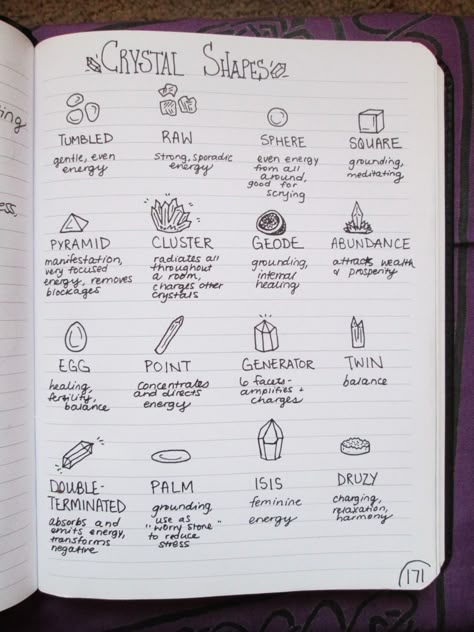 ing
ess,
CRYSTAL SHAPES
TUMBLED
gentle, even
energy
RAW
strong, sporadic
energy
SPHERE
even energy
from all
around,
good for
scrying
SQUARE
grounding,
meditating
PYRAMID
manifestation,
very focused
energy, removes
blockages
CLUSTER
radiates all
throughout
a room,
charges other
crystals
GEODE
grounding,
internal
healing
ABUNDANCE
attracts wealth
& prosperity
EGG
healing,
fertility,
balance
POINT
concentrates
and directs
energy
GENERATOR
6 facets-
amplifies +
charges
TWIN
balance
DOUBLE-
TERMINATED
absorbs and
emits energy,
transforms
negative
PALM
grounding,
use as
"worry stone"
to reduce
stress
ISIS
feminine
energy
DRUZY
charging,
relaxation,
harmony
171